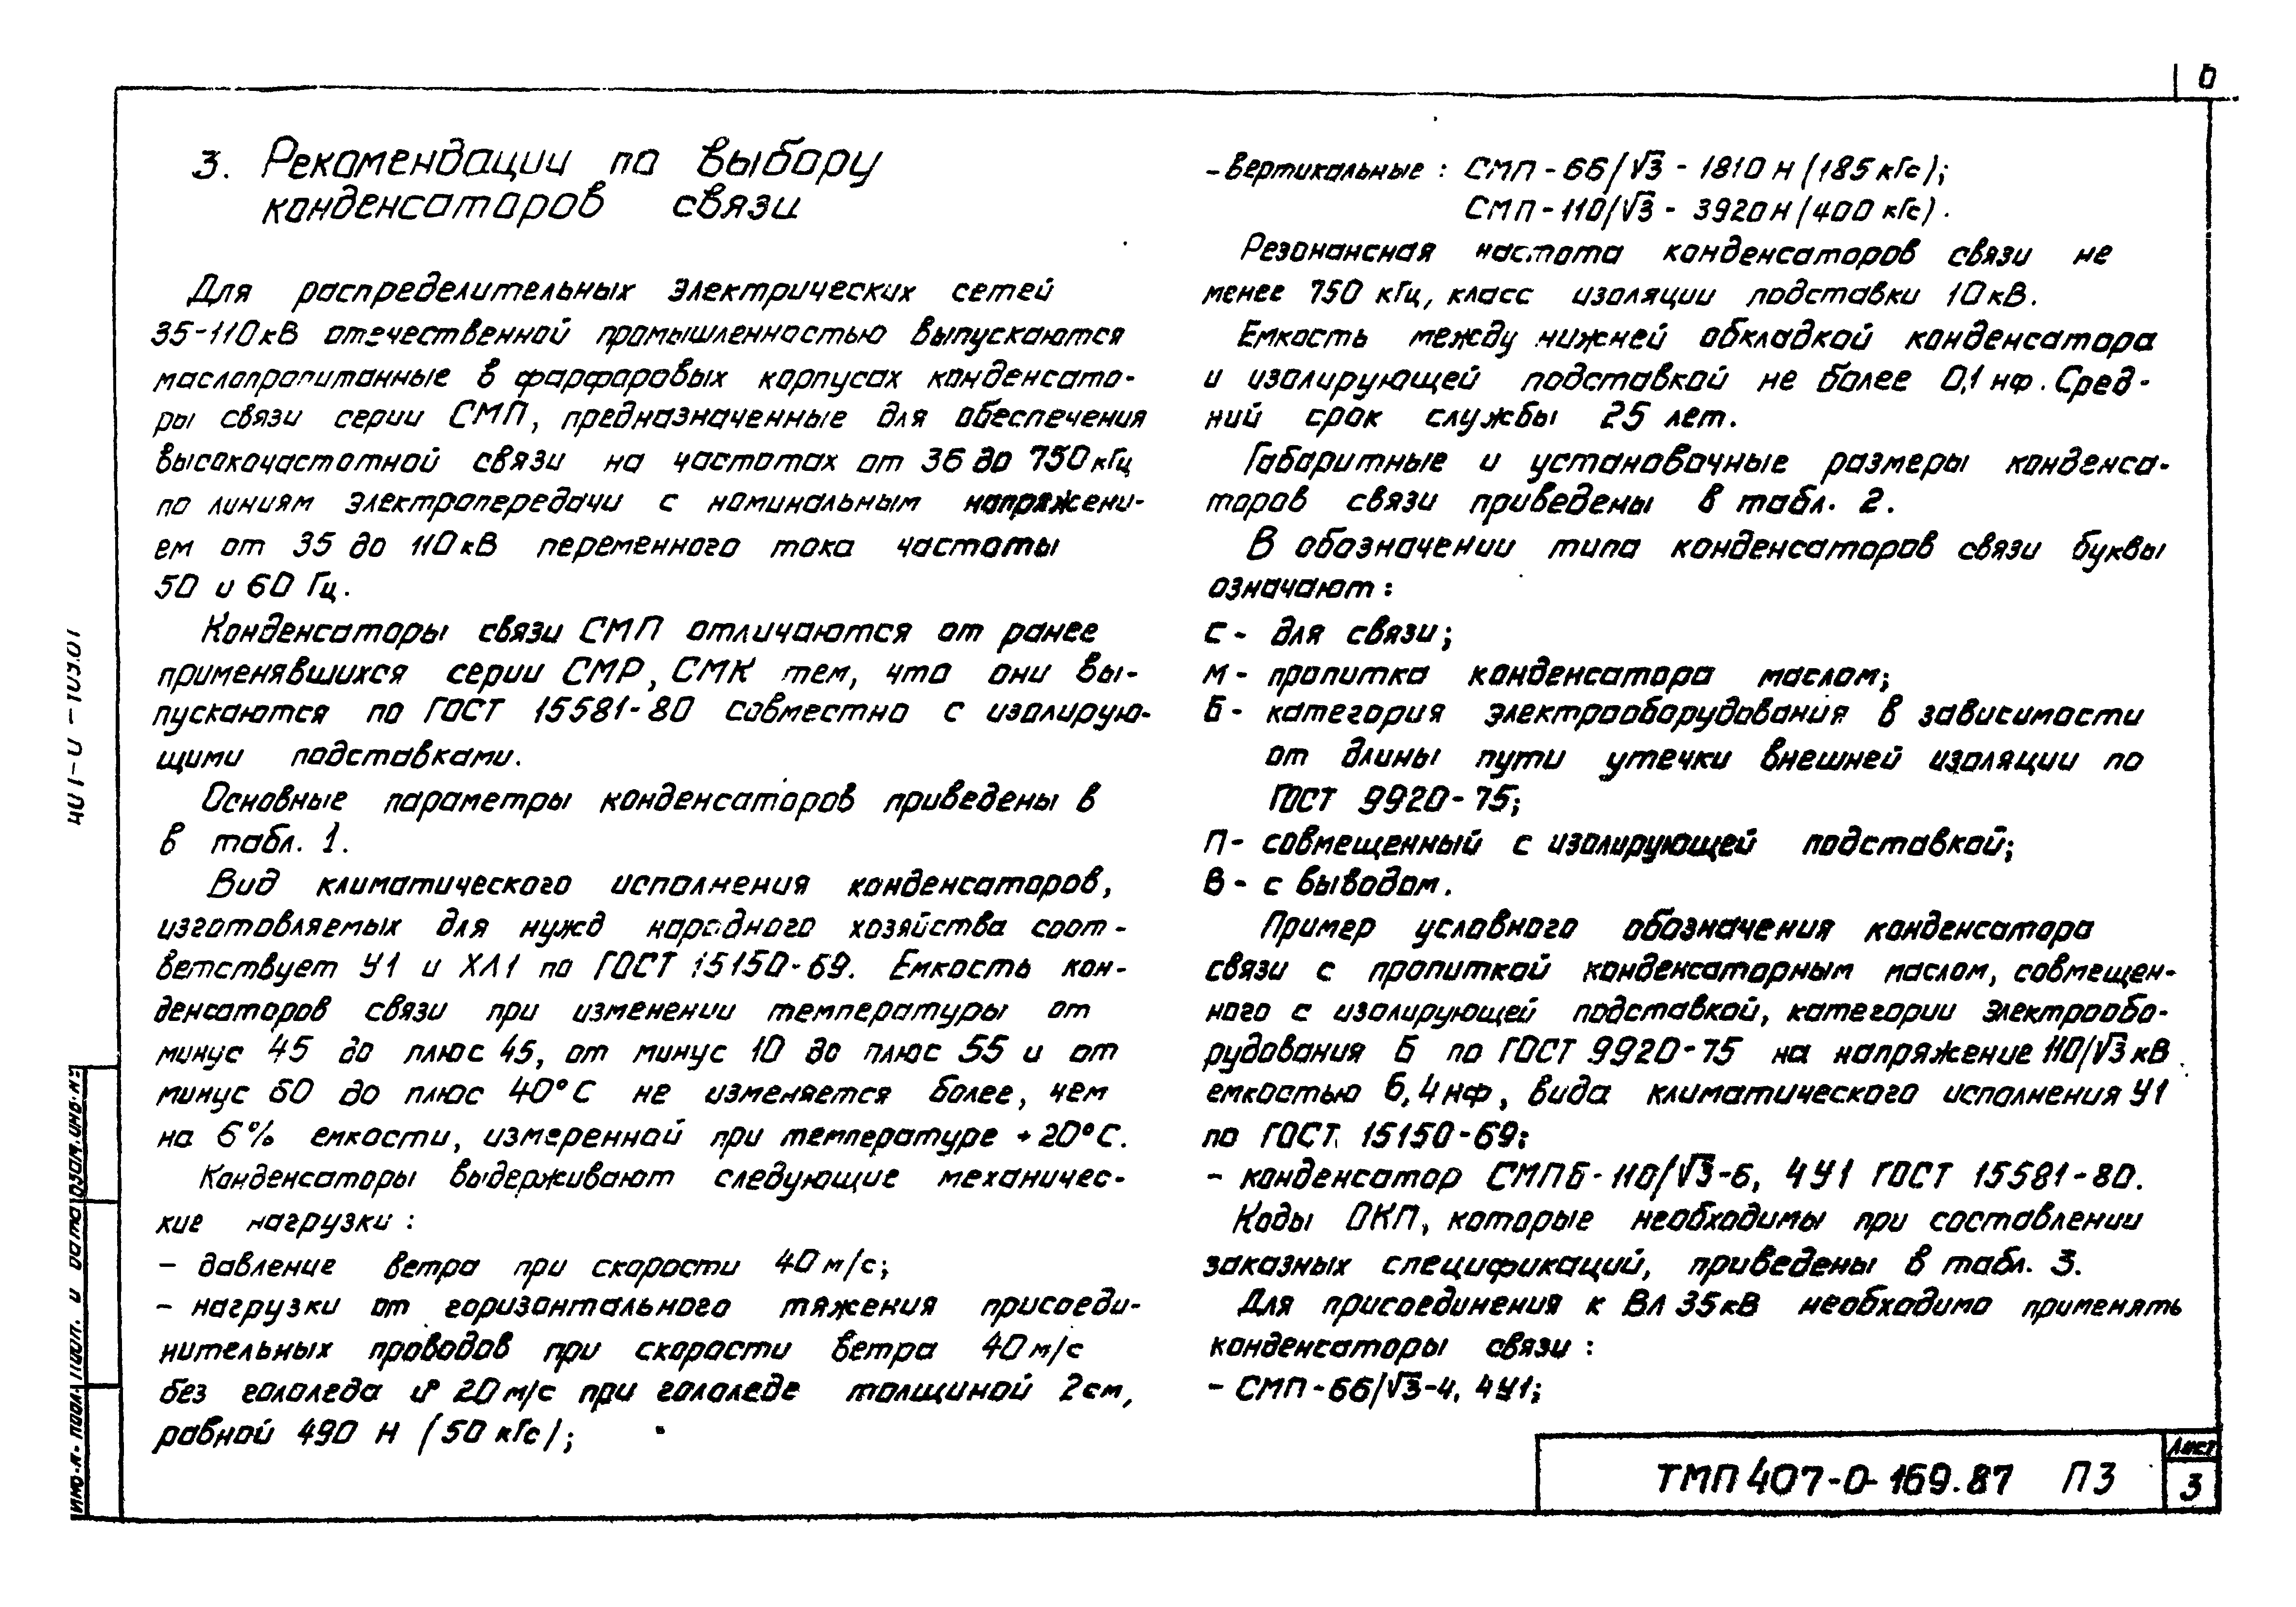 3. Рекомендации по выбору
конденсаторов связи
Для распределительных электрических сетей
35-110кВ отечественной промышленностью выпускаются
маслопропитанные в фарфоровых корпусах конденсато-
ры связи серии СМП, предназначенные для обеспечения
высокочастотной связи на частотах от 36 до 750 кГц
по линиям электропередачи с номинальным напряжени-
ем от 35 до 110кВ переменного тока частоты
50 и 60 Гц.
Конденсаторы связи СМП отличаются от ранее
применявшихся серии СМР, СМК тем, что они вы-
пускаются по ГОСТ 15581-80 совместно с изолирую-
щими подставками.
Основные параметры конденсаторов приведены в
в табл. 1.
Вид климатического исполнения конденсаторов,
изготовляемых для нужд народного хозяйства соот-
ветствует У1 и ХЛ1 по ГОСТ 15150-69. Емкость кон-
денсаторов связи при изменении температуры от
минус 45 до плюс 45, от минус 10 до плюс 55 и от
минус 60 до плюс 40°С не изменяется более, чем
на 6% емкости, измеренной при температуре +20°С.
Конденсаторы выдерживают следующие механичес-
кие нагрузки:
- давление ветра при скорости 40 м/с;
- нагрузки от горизонтального тяжения присоеди-
нительных проводов при скорости ветра 40 м/с
без гололеда и 20 м/с при гололеде толщиной 2см,
равной 490 Н (50 кГс);
- вертикальные: СМП-66/√3 - 1810 Н (185 кГс);
СМП-110/√3 - 3920Н (400 кГс).
Резонансная частота конденсаторов связи не
менее 750 кГц, класс изоляции подставки 10кВ.
Емкость между нижней обкладкой конденсатора
и изолирующей подставкой не более 0,1 нф. Сред-
ний срок службы 25 лет.
Габаритные и установочные размеры конденса-
торов связи приведены в табл. 2.
В обозначении типа конденсаторов связи буквы
означают:
С - для связи;
М - пропитка конденсатора маслом;
Б - категория электрооборудования в зависимости
от длины пути утечки внешней изоляции по
ГОСТ 9920-75;
П - совмещенный с изолирующей подставкой;
В - с выводом.
Пример условного обозначения конденсатора
связи с пропиткой конденсаторным маслом, совмещен-
ного с изолирующей подставкой, категории электрообо-
рудования Б по ГОСТ 9920-75 на напряжение 110/√3 кВ
емкостью 6,4 нф, вида климатического исполнения У1
по ГОСТ 15150-69:
- конденсатор СМПБ-110/√3-6,4У1 ГОСТ 15581-80.
Коды ОКП, которые необходимы при составлении
заказных спецификаций, приведены в табл. 3.
Для присоединения к ВЛ 35кВ необходимо применять
конденсаторы связи:
- СМП-66/√3-4,4У1;
ТМП 407-0-169.87 ПЗ
Лист
3
Инв.№ подл. Подп. и дата Взам.инв.№